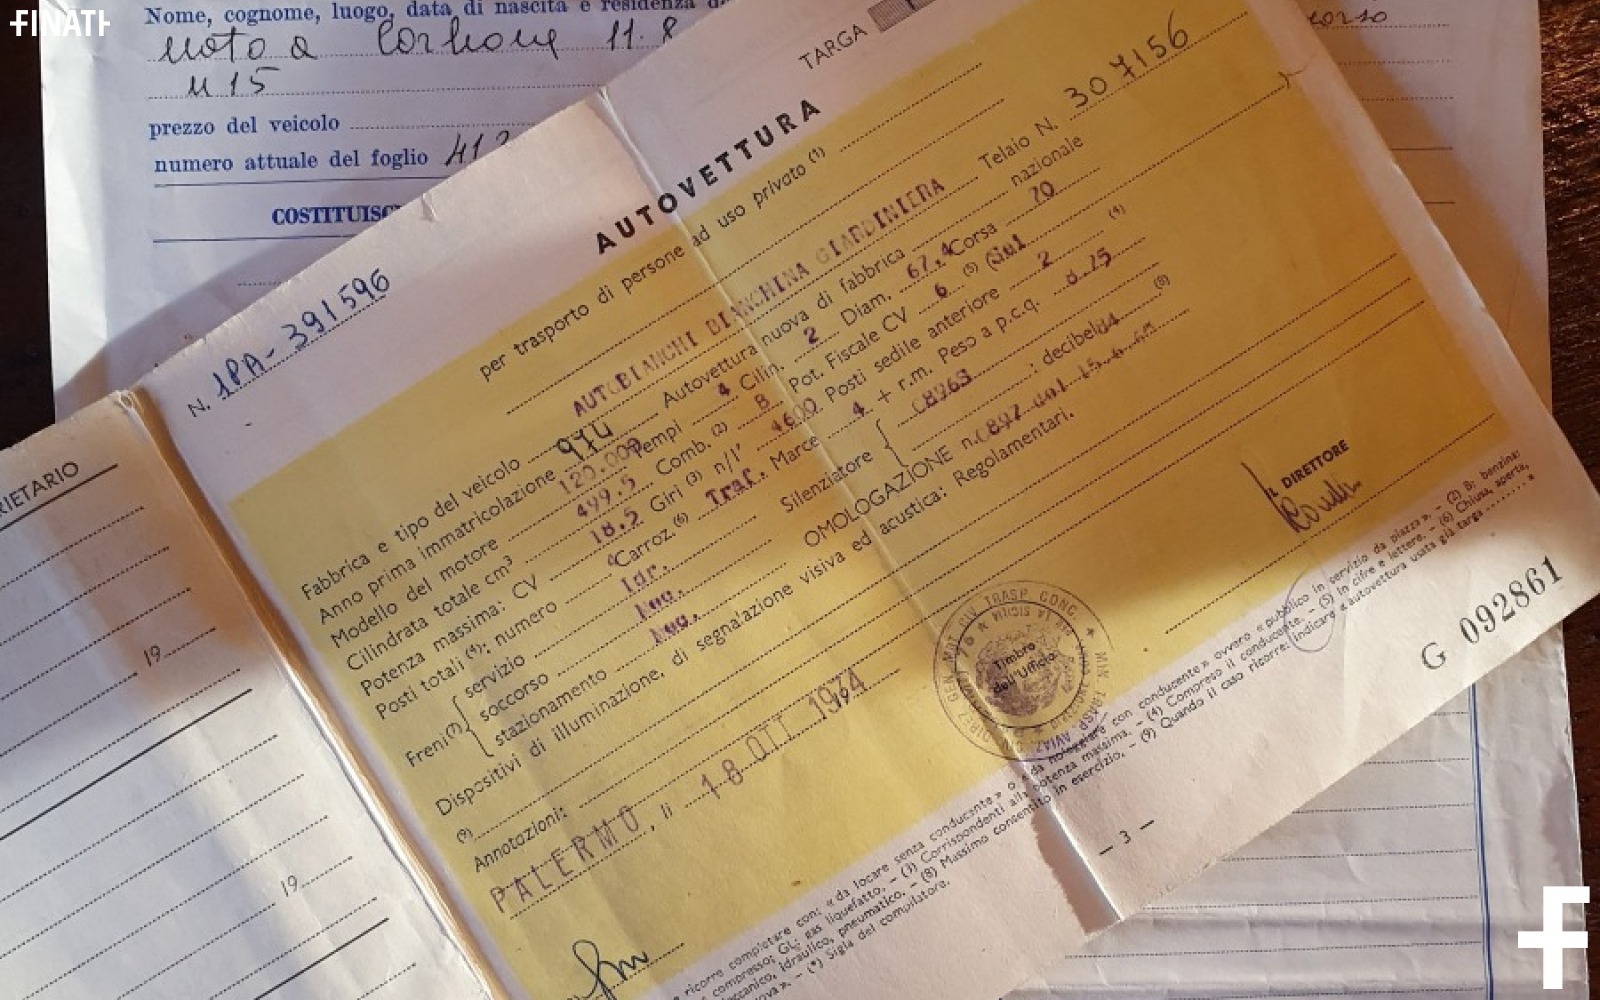 FINAT
Nome, cognome, luogo, data di nascita e residenza
nato a Corleone 11. 8
n 15
prezzo del veicolo
numero attuale del foglio 413
COSTITUISC
corso
RIETARIO
19
19
TARGA
N. 1PA-391596
AUTOVETTURA
per trasporto di persone ad uso privato (1)
AUTOBIANCHI BIANCHINA GIARDINIERA
Fabbrica e tipo del veicolo Telaio N. 307156
Anno prima immatricolazione 974 Autovettura nuova di fabbrica nazionale
Modello del motore 120.000 Tempi 4 Cilin. 2 Diam. 67.4 Corsa 70
Cilindrata totale cm³ 499.5 Comb. (2) B Pot. Fiscale CV 6 (5) (Sei
Potenza massima: CV 18.5 Giri (3) n/1' 4600 Posti sedile anteriore 2 (4)
Posti totali (4): numero 4 Carroz. (6) Traf. Marce 4 + r.m. Peso a p.c.q.
Freni (7) servizio Idr. Silenziatore : decibel (8)
soccorso
stazionamento OMOLOGAZIONE n.
Dispositivi di illuminazione, di segnalazione visiva ed acustica: Regolamentari.
(9)
Annotazioni:
PALERMO, li 18 OTT 1974
Timbro
dell'Ufficio
IL DIRETTORE
ricorre completare con: « da locare senza conducente » o « da noleggiare con conducente » ovvero « pubblico in servizio da piazza ». - (2) B: benzina;
compresso; GL: gas liquefatto. - (3) Corrispondenti alla potenza massima. - (4) Compreso il conducente. - (5) In cifre e lettere. - (6) Chiusa, aperta,
idraulico, pneumatico. - (8) Massimo consentito in esercizio. - (9) Quando il caso ricorre: indicare « autovettura usata già targa
». - (*) Sigla del compilatore.
— 3 —
G 092861